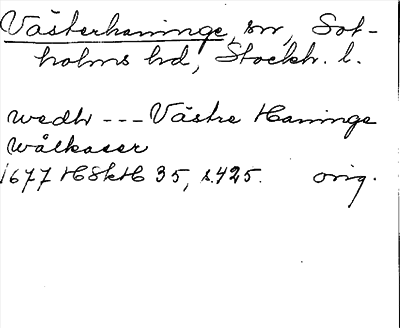 Västerhaninge, sn, Sot-
holms hd, Stockh. l.
wedh --- Västre Haninge
wålkaser
1677 HSkH 35, s. 425. orig.